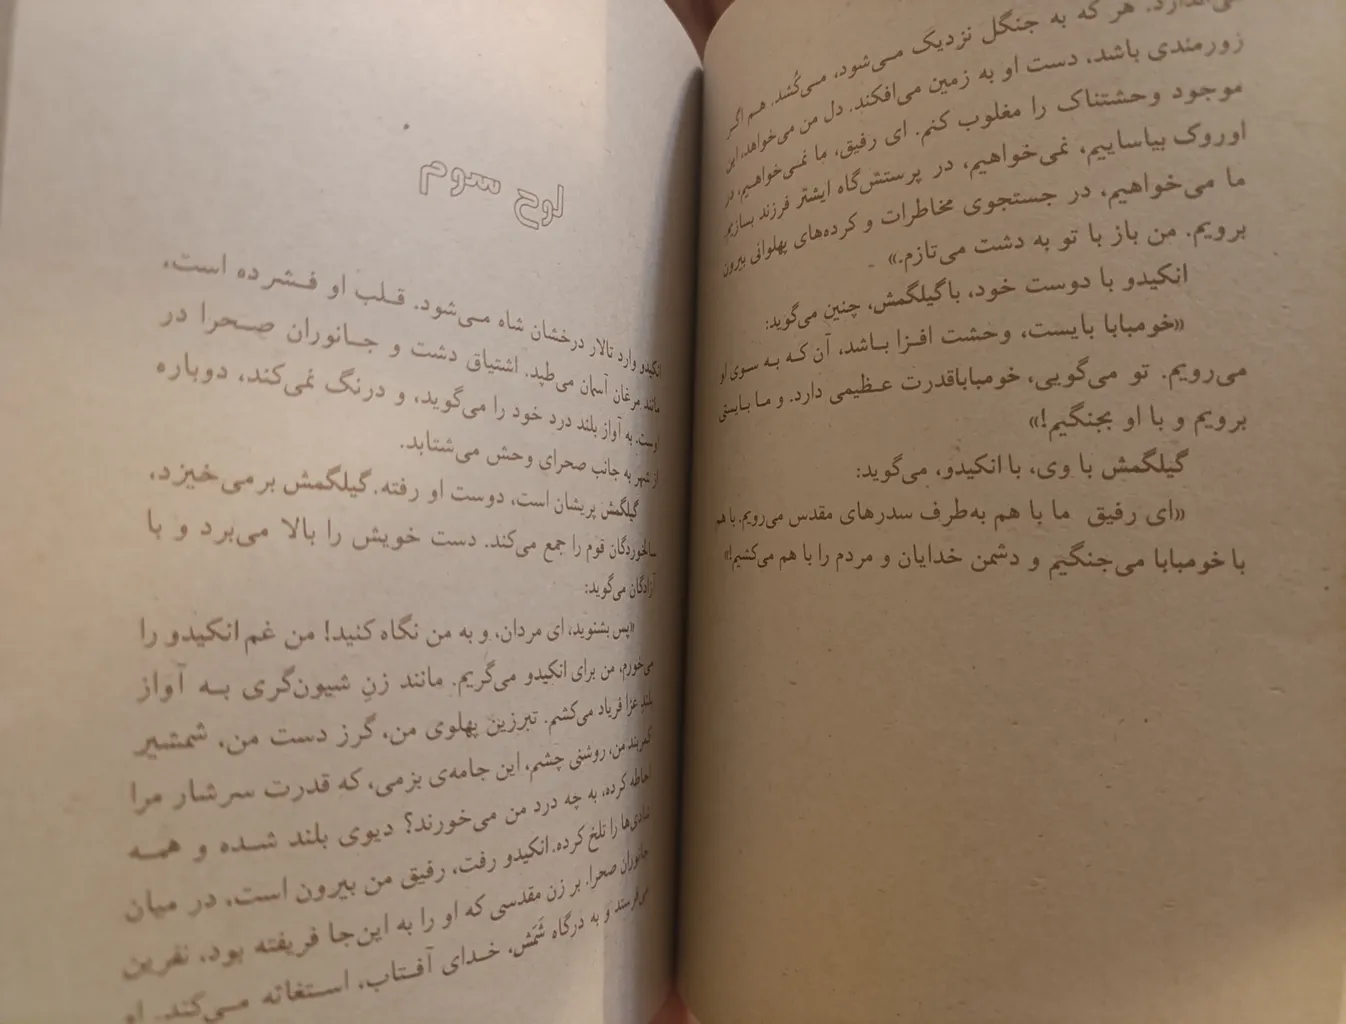 هر که به جنگل نزدیک می‌شود، می‌کُشد. هم اگر
زورمندی باشد، دست او به زمین می‌افکند. دل من می‌خواهد، این
موجود وحشتناک را مغلوب کنم. ای رفیق، ما نمی‌خواهیم، در
اوروک بیاساییم، نمی‌خواهیم، در پرستش‌گاه ایشتر فرزند بسازیم.
ما می‌خواهیم، در جستجوی مخاطرات و کرده‌های پهلوانی بیرون
برویم. من باز با تو به دشت می‌تازم.»
انکیدو با دوست خود، با گیلگمش، چنین می‌گوید:
«خومبابا بایست، وحشت افزا باشد، آن که به سوی او
می‌رویم. تو می‌گویی، خومبابا قدرت عظیمی دارد. و ما بایستی
برویم و با او بجنگیم!»
گیلگمش با وی، با انکیدو، می‌گوید:
«ای رفیق ما با هم به‌طرف سدرهای مقدس می‌رویم. با هم
با خومبابا می‌جنگیم و دشمن خدایان و مردم را با هم می‌کشیم!»
لوح سوم
انکیدو وارد تالار درخشان شاه می‌شود. قلب او فشرده است،
مانند مرغان آسمان می‌طپد. اشتیاق دشت و جانوران صحرا در
اوست. به آواز بلند درد خود را می‌گوید، و درنگ نمی‌کند، دوباره
از شهر به جانب صحرای وحش می‌شتابد.
گیلگمش پریشان است، دوست او رفته. گیلگمش برمی‌خیزد،
سالخوردگان قوم را جمع می‌کند. دست خویش را بالا می‌برد و با
آزادگان می‌گوید:
«پس بشنوید، ای مردان، و به من نگاه کنید! من غم انکیدو را
می‌خورم، من برای انکیدو می‌گریم. مانند زنِ شیون‌گری به آواز
بلند عزا فریاد می‌کشم. تبرزین پهلوی من، گرز دست من، شمشیر
کمربند من، روشنی چشم، این جامه‌ی بزمی، که قدرت سرشار مرا
احاطه کرده، به چه درد من می‌خورند؟ دیوی بلند شده و همه
شادی‌ها را تلخ کرده. انکیدو رفت، رفیق من بیرون است، در میان
جانوران صحرا. بر زن مقدسی که او را به این‌جا فریفته بود، نفرین
می‌فرستد و به درگاه شَمَش، خدای آفتاب، استغاثه می‌کند. او